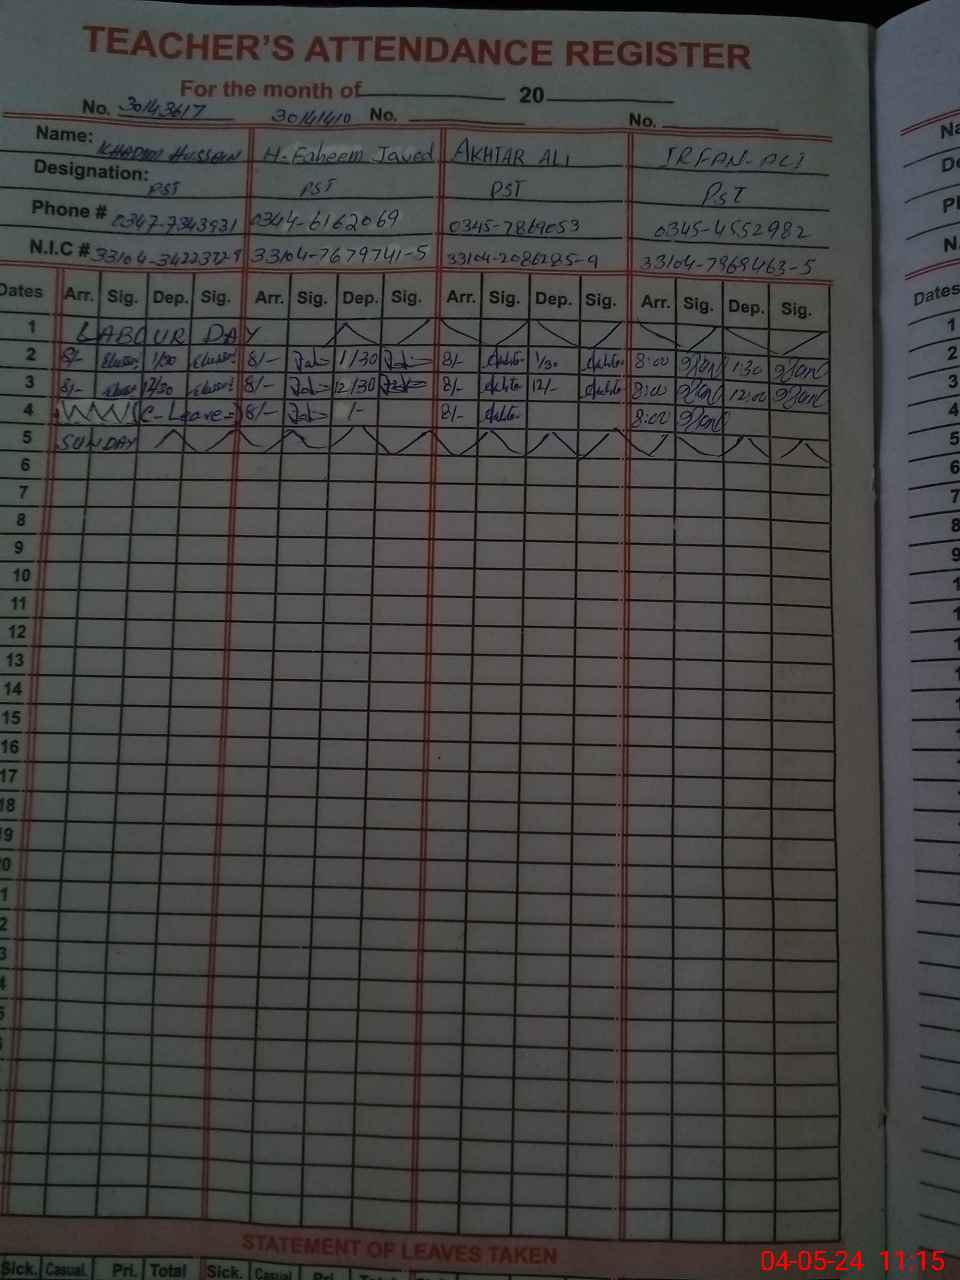 TEACHER'S ATTENDANCE REGISTER
For the month of 20
No. 30143617 30141410 No. No.
Name: KHADIM HUSSAIN H. Faheem Javed AKHTAR ALI IRFAN ALI
Designation: PST PST PST PST
Phone # 0347-7343931 0344-6162069 0345-7869053 0345-4552982
N.I.C # 33104-7679741-5 33104-2086285-9 33104-7969463-5
Dates Arr. Sig. Dep. Sig. Arr. Sig. Dep. Sig. Arr. Sig. Dep. Sig. Arr. Sig. Dep. Sig.
1 LABOUR DAY
2 8/- 1/30 8/- 1/30 8/- 1/30 8:00 1:30
3 8/- 12/30 8/- 12/30 8/- 12/- 8:00 12:00
4 C-Leave 8/- 1- 8/- 8:00
5 SUNDAY
6
7
8
9
10
11
12
13
14
15
16
17
18
19
20
1
2
3
4
5
STATEMENT OF LEAVES TAKEN
Sick. Casual Pri. Total Sick. Casual Pri. Total
Dates
1
2
3
4
5
6
7
8
9
04-05-24 11:15